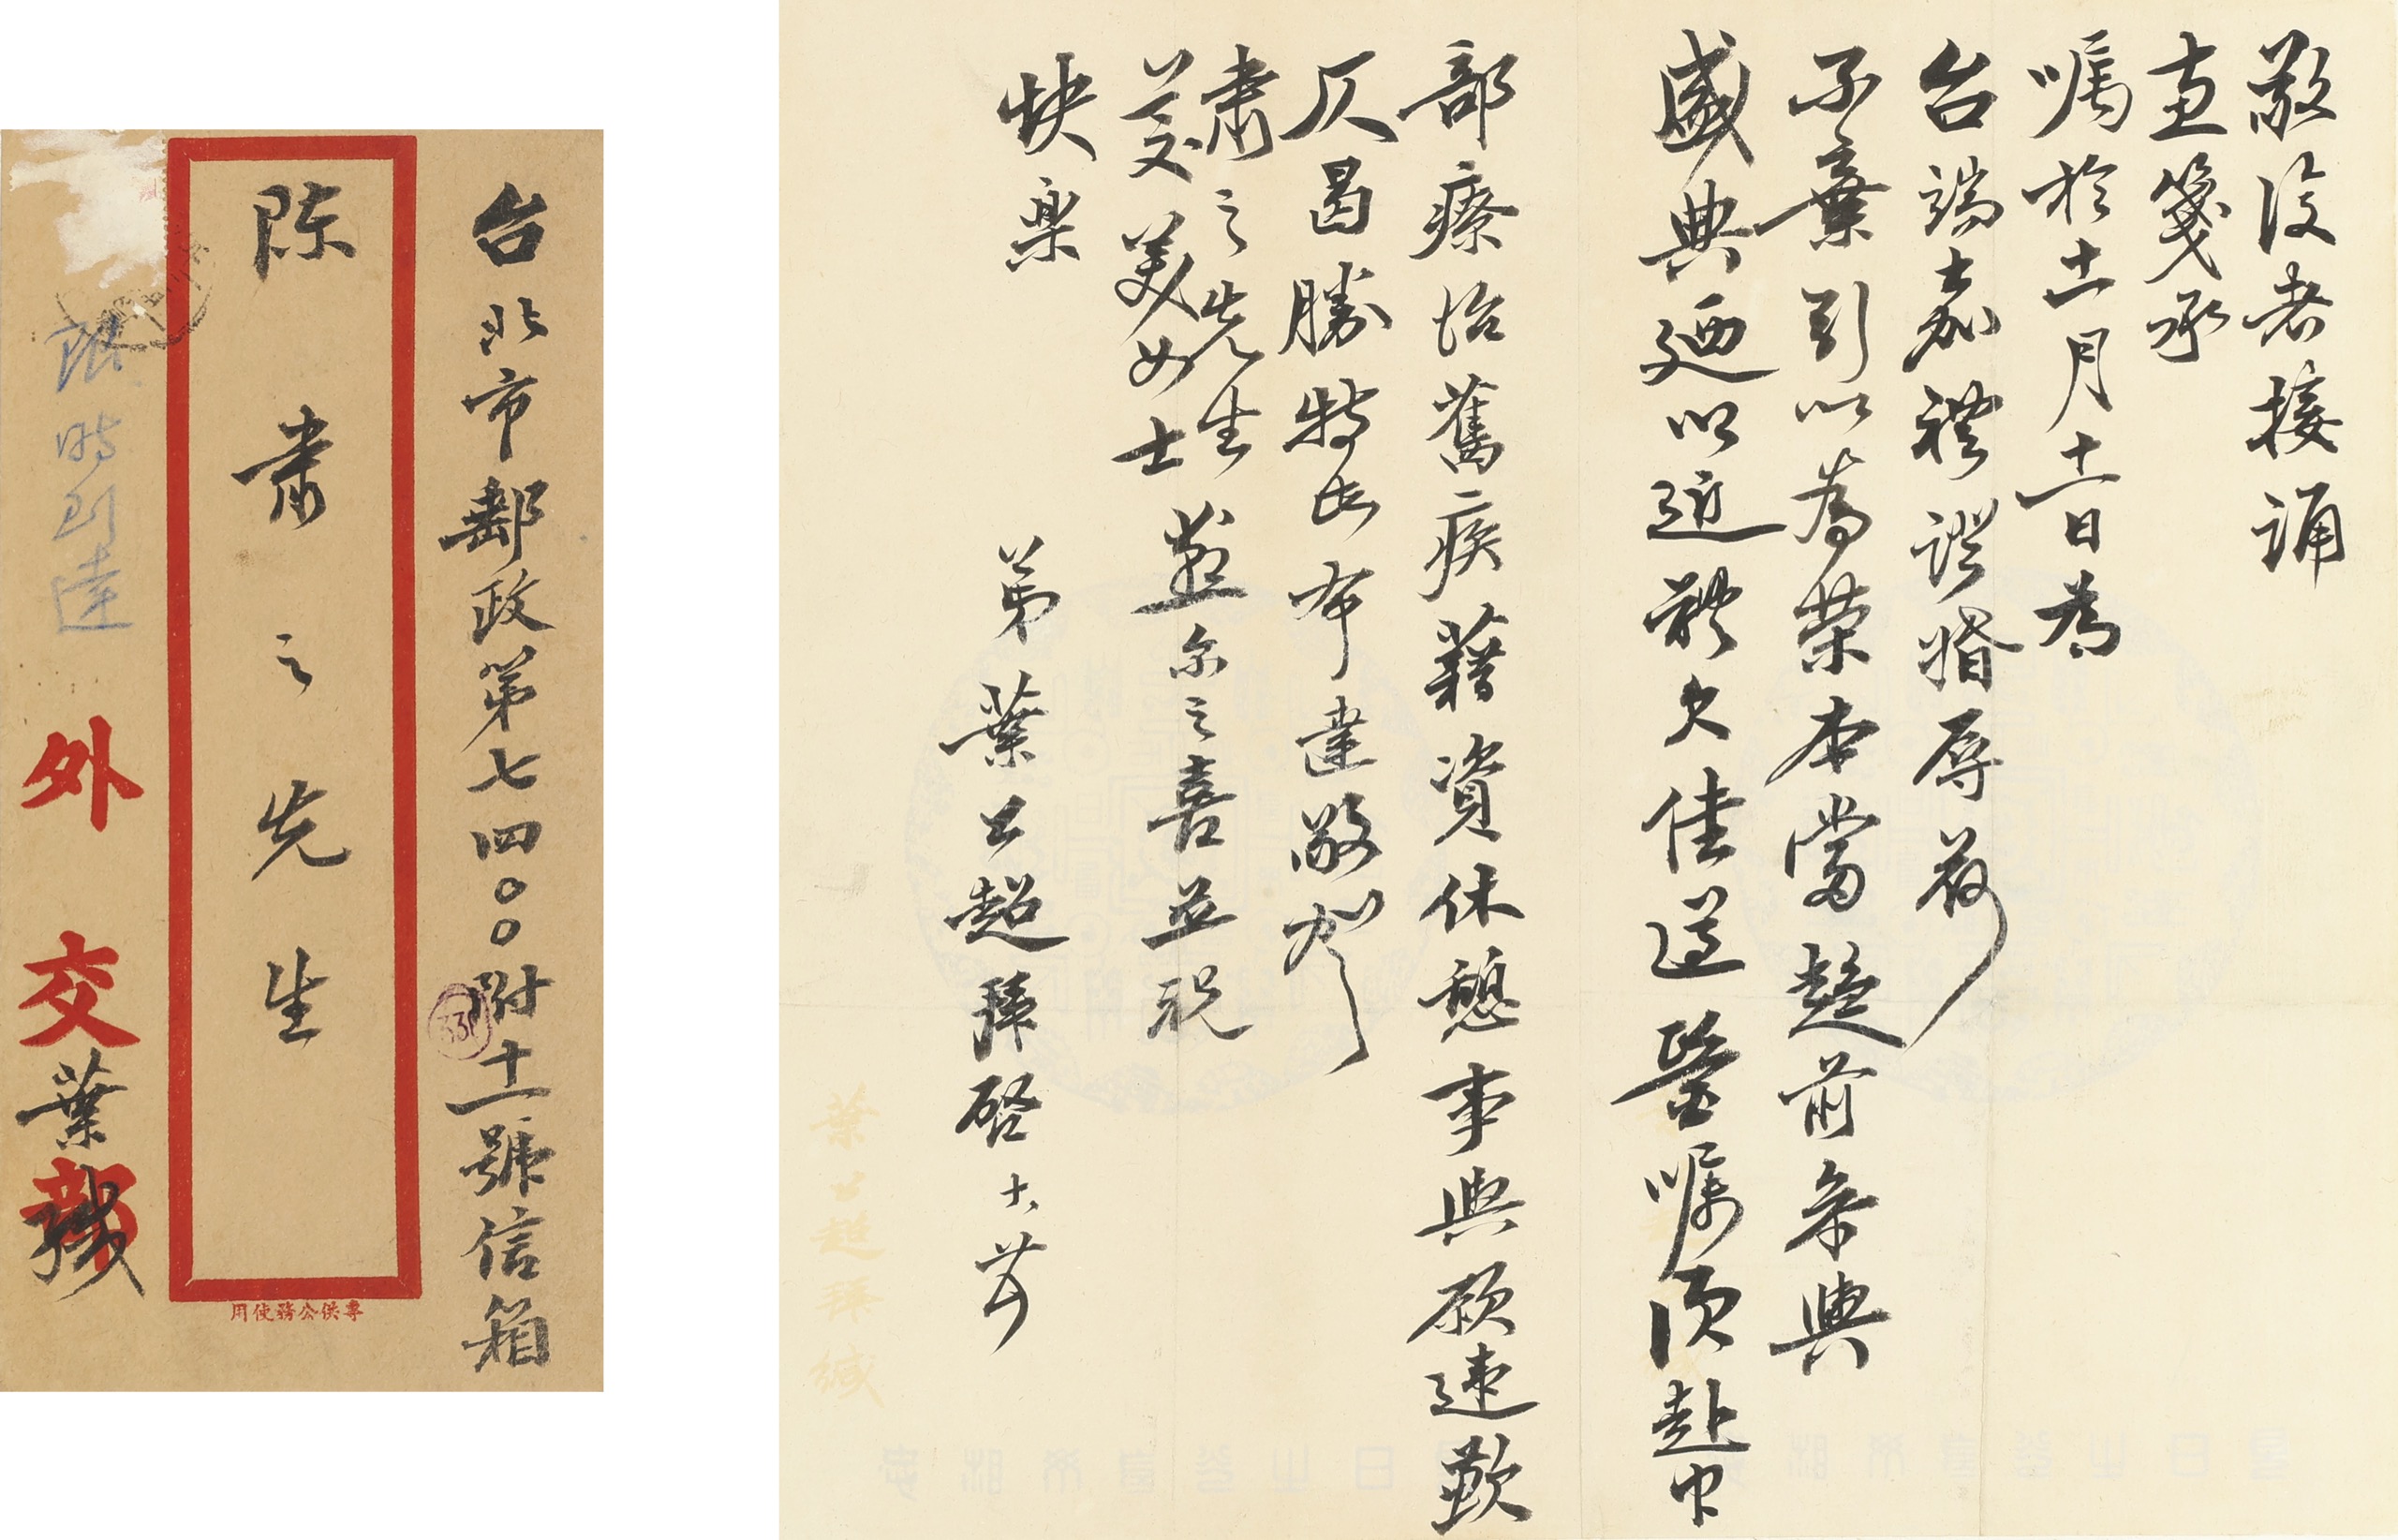 敬復者接誦
惠箋承
囑於十一月十一日為
台端嘉禮證婚辱荷
不棄引以為榮本當趨前參與
盛典廼以近躰欠佳遵醫囑須赴中
部療治舊疾藉資休憩事與願違歉
仄曷勝特此布達敬賀
肅之先生
美女士燕尔之喜並祝
快樂
弟葉公超拜啓十、廿
台北市郵政第七四〇〇附十一號信箱
陳肅之先生
限時到達
外交部
葉緘
專供公務使用
331
葉公超拜緘